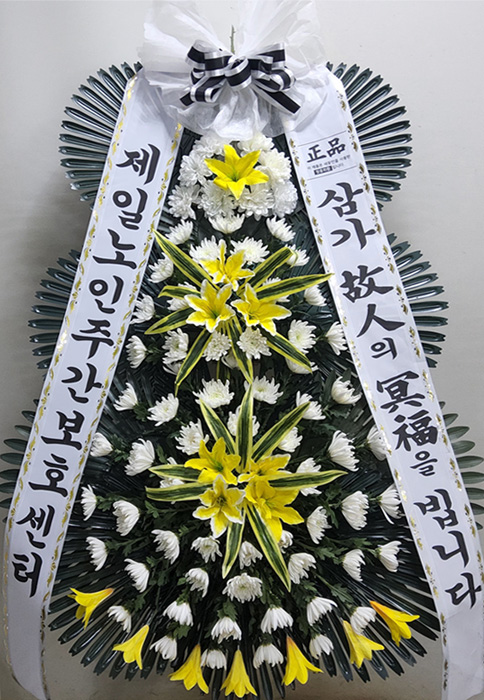 제일노인주간보호센터
正品
삼가 故人의 冥福을 빕니다